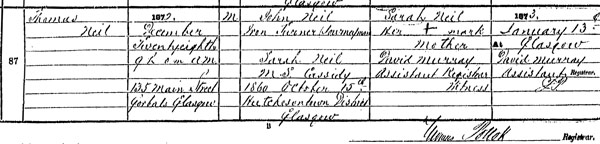 Glasgow
Thomas Neil
87
1872.
December
Twenty eighth
9 h. 0 m. A M.
135 Main Street
Gorbals Glasgow
M
John Neil
Iron Turner Journeyman
Sarah Neil
M. S. Cassidy
1860 October 15
Hutchesontown District
Glasgow
Sarah Neil
Her + mark
Mother
David Murray
Assistant Registrar
Witness
1873.
January 13
At Glasgow
David Murray
Assistant Registrar.
Registrar.